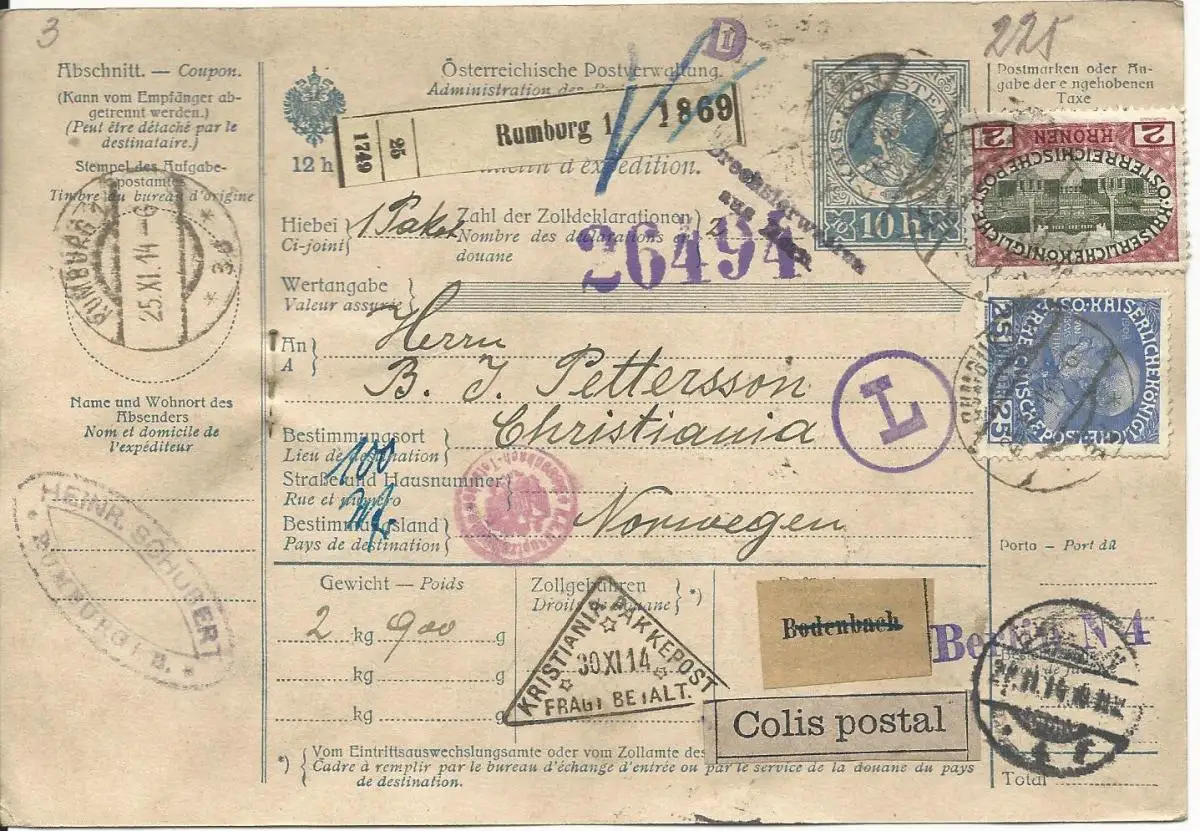 3
225
Abschnitt. — Coupon.
(Kann vom Empfänger ab-
getrennt werden.)
(Peut être détaché par le
destinataire.)
Stempel des Aufgabe-
postamtes
Timbre du bureau d'origine
RUMBURG
25.XI.14-6
Name und Wohnort des
Absenders
Nom et domicile de
l'expéditeur
HEINR. SCHUBERT
RUMBURG i. B.
Österreichische Postverwaltung.
Administration des
12 h
d'expédition.
1749
25
Rumburg 1
1869
I
D
KAIS. KÖN. ÖSTERR.
10 h
Postmarken oder An-
gabe der eingehobenen
Taxe
2 2
KRONEN
KAISERLICHKÖNIGLICHE
ÖSTERREICHISCHE POST
25 25
KAISERLICHEKÖNIGL
ÖSTERREICHISCHE POST
Hiebei
Ci-joint
1 Paket
Zahl der Zolldeklarationen
Nombre des déclarations en
douane
2
aus
26494
Wertangabe
Valeur assurée
An
A
Herrn
B. J. Pettersson
Christiania
Bestimmungsort
Lieu de destination
100
Straße und Hausnummer
Rue et numéro
Bestimmungsland
Pays de destination
Norwegen
L
Gewicht — Poids
2 kg 900 g
kg g
kg g
Zollgebühren
Droits de douane
*)
KRISTIANIA PAKKEPOST
30 XI.14
FRAGT BETALT.
Bodenbach
Berlin N 4
Colis postal
Porto — Port dû
Total
*) Vom Eintrittsauswechslungsamte oder vom Zollamte des
Cadre à remplir par le bureau d'échange d'entrée ou par le service de la douane du pays
de destination.